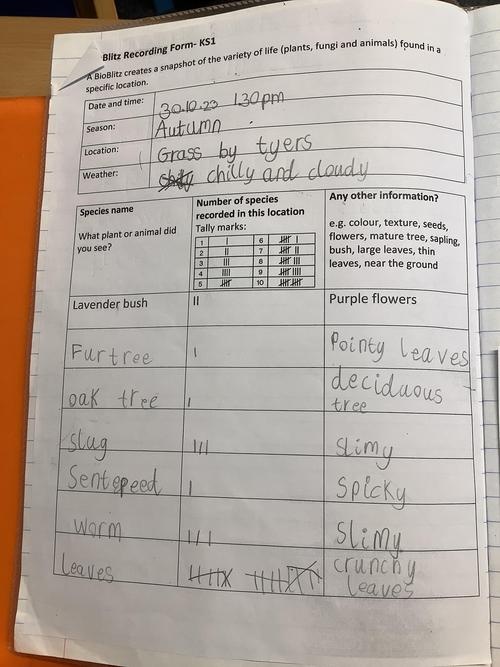 Blitz Recording Form- KS1
A BioBlitz creates a snapshot of the variety of life (plants, fungi and animals) found in a
specific location.
Date and time: 30.10.23 1.30pm
Season: Autumn
Location: Grass by tyers
Weather: chilly and cloudy
Species name
What plant or animal did
you see?
Number of species
recorded in this location
Tally marks:
1 | 6 |||| |
2 || 7 |||| ||
3 ||| 8 |||| |||
4 |||| 9 |||| ||||
5 |||| 10 |||| ||||
Any other information?
e.g. colour, texture, seeds,
flowers, mature tree, sapling,
bush, large leaves, thin
leaves, near the ground
Lavender bush || Purple flowers
Fur tree | Pointy leaves
oak tree | deciduous
tree
slug ||| Slimy
Sentepeed | Spicky
worm ||| Slimy
leaves crunchy
leaves